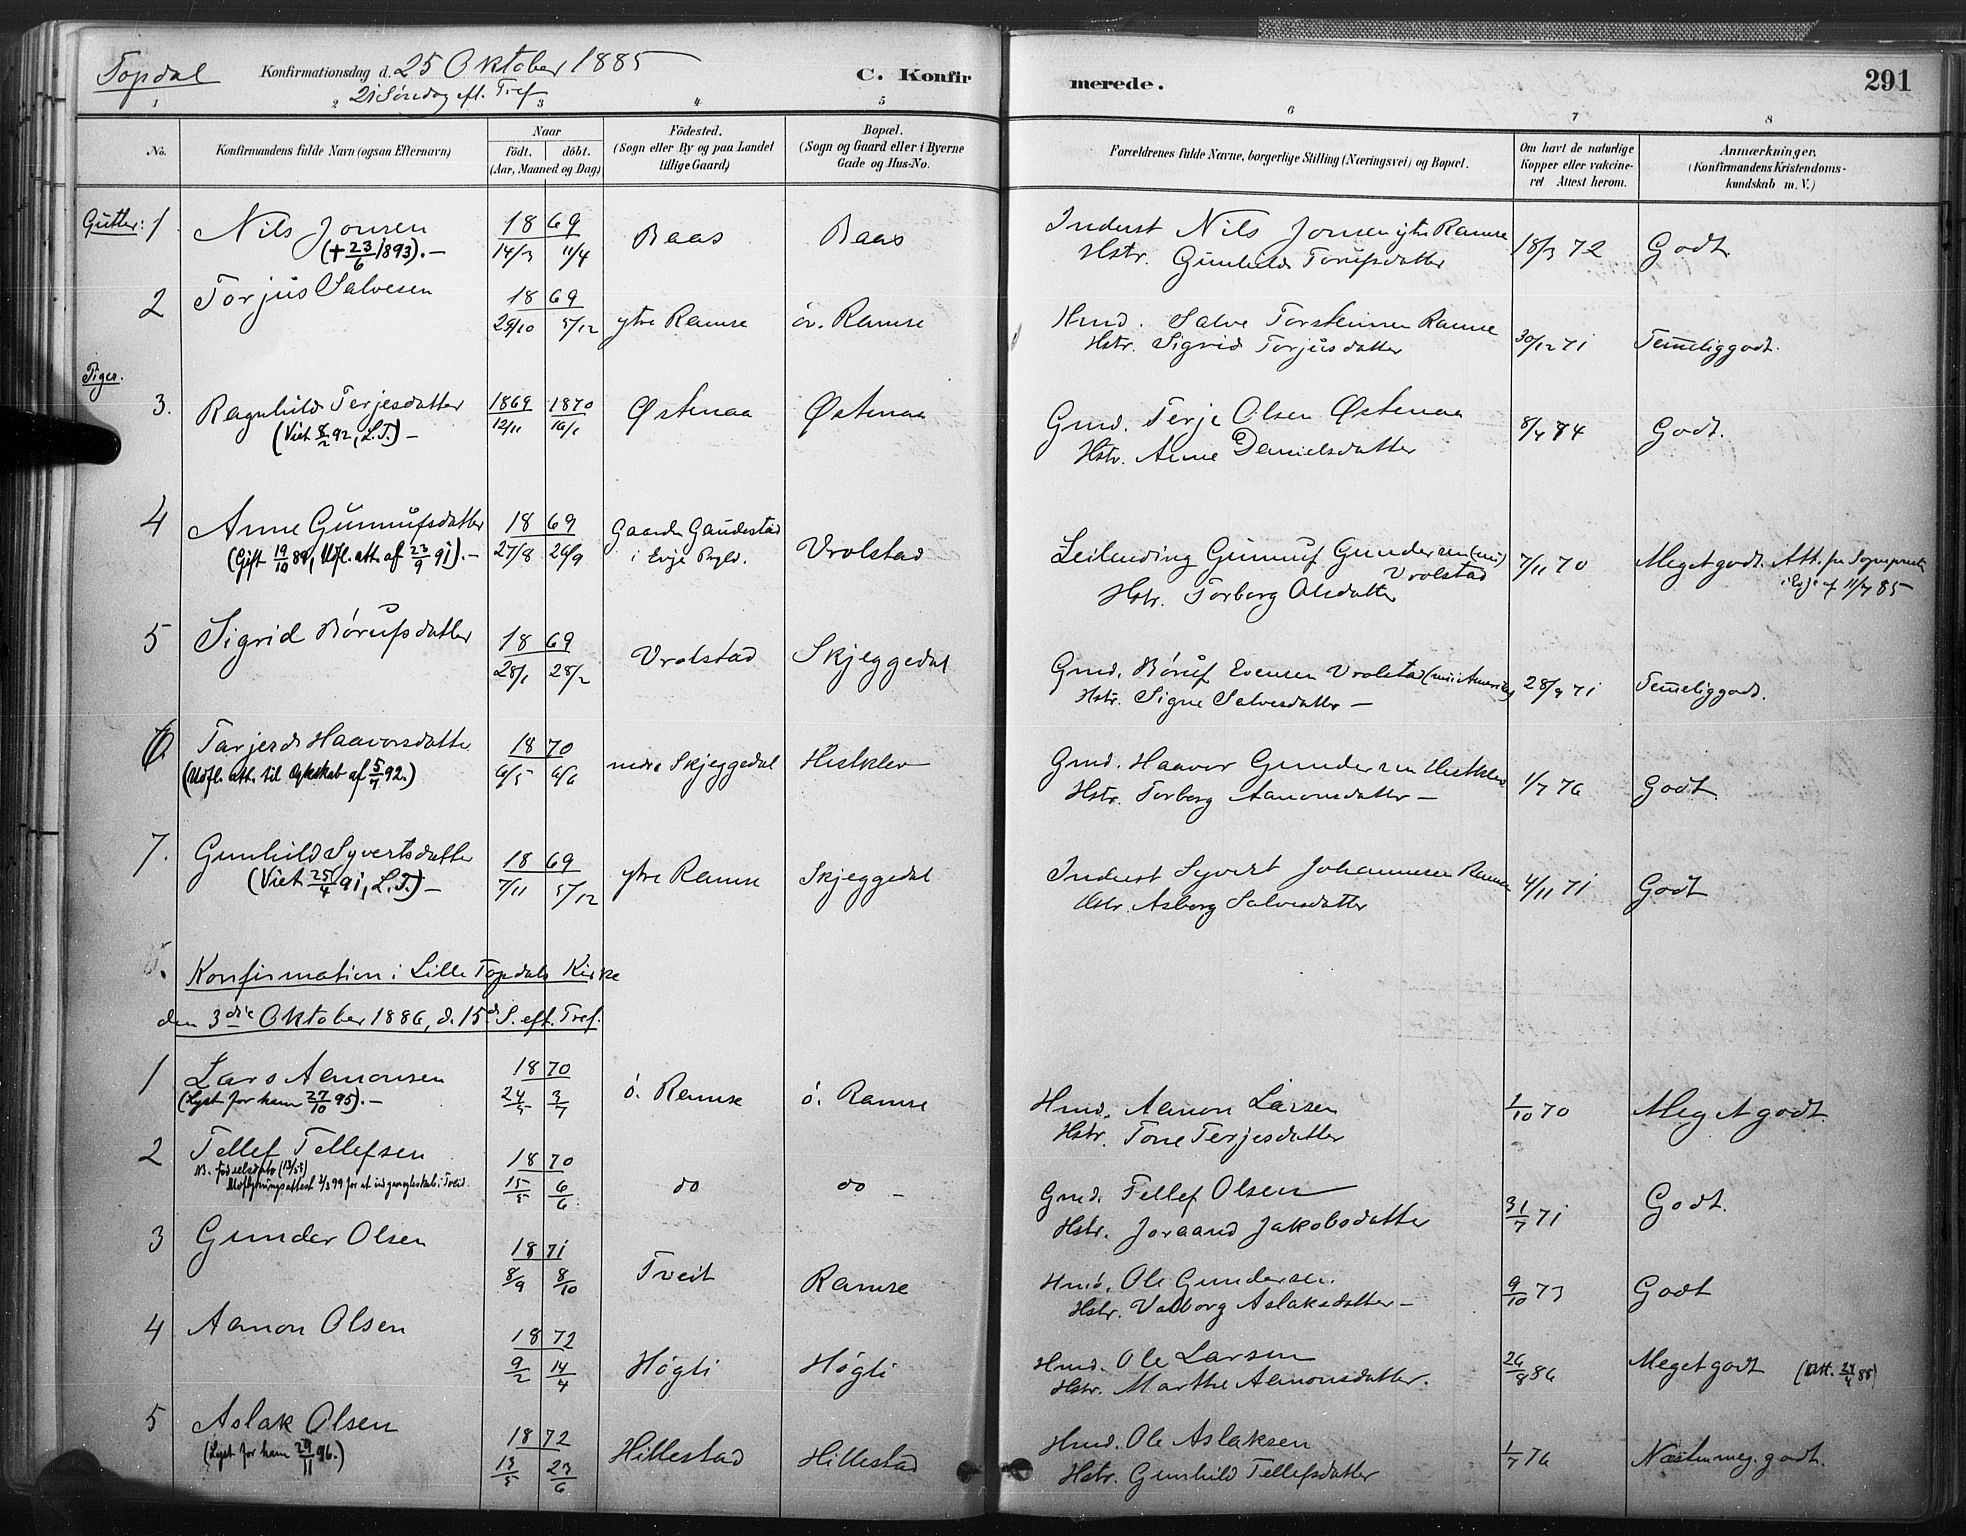 Topdal Konfirmationsdag d. 25 Oktober 1885 C. Konfirmerede. 291
21 Søndag eft. Tref.
1 2 3 4 5 6 7 8
No. Konfirmandens fulde Navn (ogsaa Efternavn) Naar födt. döbt. (Aar, Maaned og Dag) Födested. (Sogn eller By og paa Landet tillige Gaard) Bopæl. (Sogn og Gaard eller i Byerne Gade og Hus-No. Forældrenes fulde Navne, borgerlige Stilling (Næringsvei) og Bopæl. Om havt de naturlige Kopper eller vakcineret Attest herom. Anmærkninger, (Konfirmandens Kristendomskundskab m. V.)
Gutter: 1 Nils Jonsen 18 69 Baas Baas Inderst Nils Jonsen ytre Ramse 18/3 72 Godt.
(+ 23/6 1893).— 14/3 11/4 Hstr. Gunhild Torufsdatter
2 Torjus Salvesen 18 69 ytre Ramse öv. Ramse Hmd. Salve Torsteinsen Ramse 30/12 71 Temeliggodt.
29/10 5/12 Hstr. Sigrid Torjusdatter
Piger.
3. Ragnhild Terjesdatter 1869 1870 Østenaa Østenaa Gmd. Terje Olsen Østenaa 8/4 84 Godt.
(Viet 8/2 92, L.T.)— 12/11 16/1 Hstr. Anne Danielsdatter
4 Anne Gunnufsdatter 18 69 Gaarden Gaudestad i Evje Prgld. Vrolstad Leilending Gunnuf Gundersen Vrolstad 7/11 70 Meget godt. Att. fra Sognepræsten
(Gift 19/10 88, Udfl. att. af 23/9 91).— 27/8 26/9 Hstr. Torborg Olsdatter i Evje af 11/7 85
5 Sigrid Børufsdatter 18 69 Vrolstad Skjeggedal Gmd. Børuf Evensen Vrolstad (nu i Amerika) 28/9 71 Temeliggodt.
28/1 28/2 Hstr. Signe Salvesdatter —
6 Tarjerd Haavorsdatter 18 70 nedre Skjeggedal Hestklev Gmd. Haavor Gundersen Hestklev 1/7 76 Godt.
(Udfl. att. til Ægteskab af 5/4 92.) 6/5 6/6 Hstr. Torborg Aamonsdatter —
7. Gunhild Syvertsdatter 18 69 ytre Ramse Skjeggedal Inderst Syvert Johannesen Ramse 4/11 71 Godt
(Viet 25/4 91, L.T.)— 7/11 5/12 Hstr. Asborg Salvesdatter
Konfirmation i Lille Topdals Kirke
den 3die Oktober 1886, d. 15de S. eft. Tref.
1 Lars Aamonsen 18 70 ö. Ramse ö. Ramse Hmd. Aamon Larsen 1/10 70 Meget godt.
(Lyst for ham 27/10 95).— 24/5 3/7 Hstr. Tone Terjesdatter
2 Tellef Tellefsen 18 70 do do — Gmd. Tellef Olsen 31/7 71 Godt.
NB. fødselsdato 15/5 6/6 Hstr. Joraand Jakobsdatter
Udflytningsattest 1/3 99 for at indgaa ægteskab i Tveid.
3 Gunder Olsen 18 71 Tveit Ramse Hmd. Ole Gundersen 9/10 73 Godt
8/9 8/10 Hstr. Valborg Aslaksdatter —
4 Aamon Olsen 18 72 Høgli Høgli Hmd. Ole Larsen 26/8 86 Meget godt (Utt. 24/4 88)
9/2 14/4 Hstr. Marthe Aamonsdatter.
5 Aslak Olsen 18 72 Hillestad Hillestad Hmd. Ole Aslaksen 1/7 76 Næsten meg. godt.
(Lyst for ham 29/11 96.) 13/5 23/6 Hstr. Gunhild Tellefsdatter